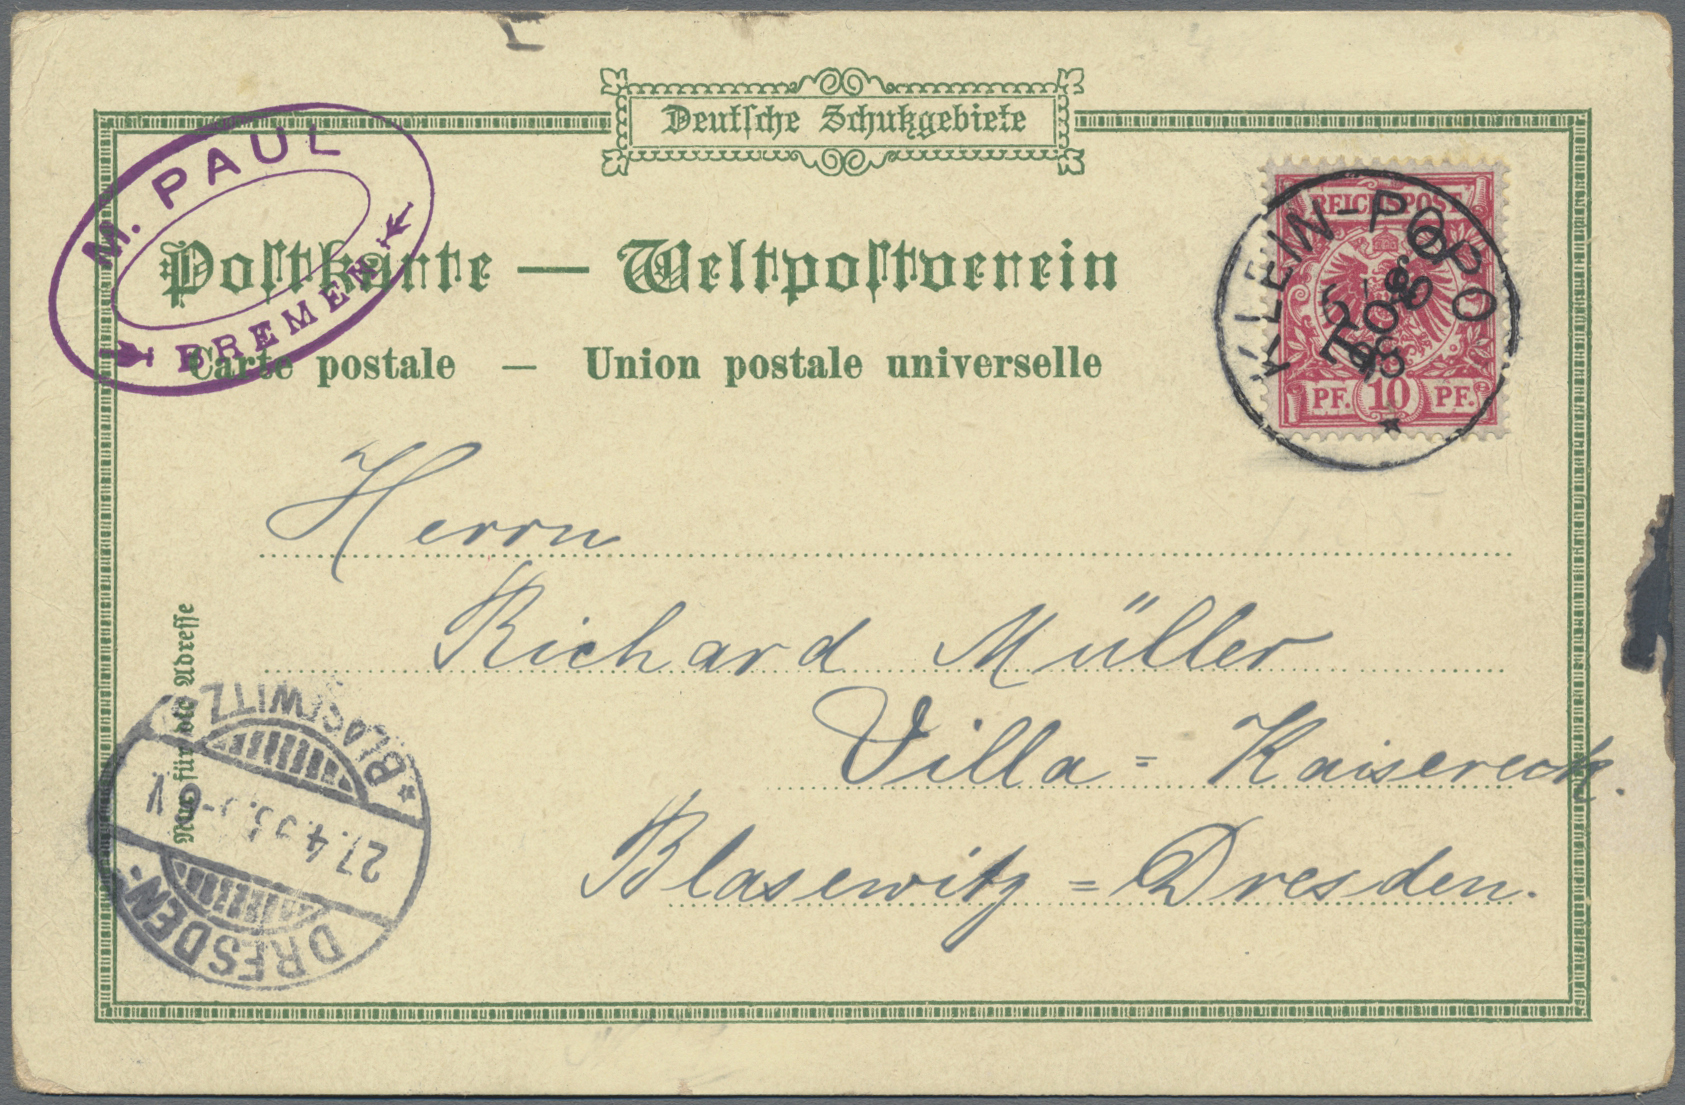 Deutsche Schutzgebiete
M. PAUL
BREMEN.
Postkarte — Weltpostverein
Carte postale — Union postale universelle
REICHSPOST
PF. 10 PF.
TOGO
KLEIN-POPO
98
Herrn
Richard Müller
Villa = Kaisereck.
Blasewitz = Dresden.
Nur für die Adresse
* BLASEWITZ
27.4. 5-6 V
DRESDEN.